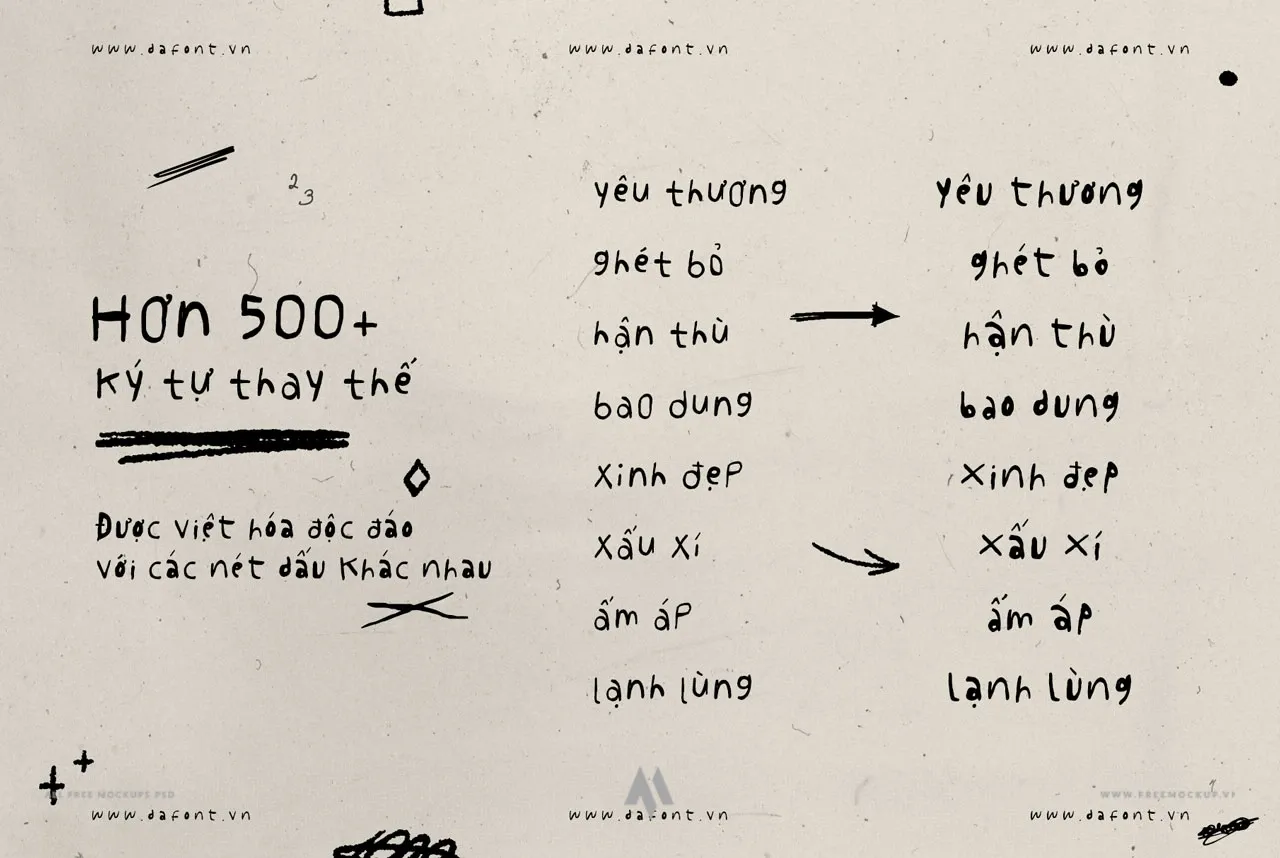 www.dafont.vn www.dafont.vn www.dafont.vn
2
3
Hơn 500+
Ký tự thay thế
Được việt hóa độc đáo
với các nét dấu khác nhau
yêu thương yêu thương
ghét bỏ ghét bỏ
hận thù hận thù
bao dung bao dung
xinh đẹp xinh đẹp
xấu xí xấu xí
ấm áp ấm áp
lạnh lùng lạnh lùng
FREE MOCKUPS PSD
www.dafont.vn www.dafont.vn www.dafont.vn